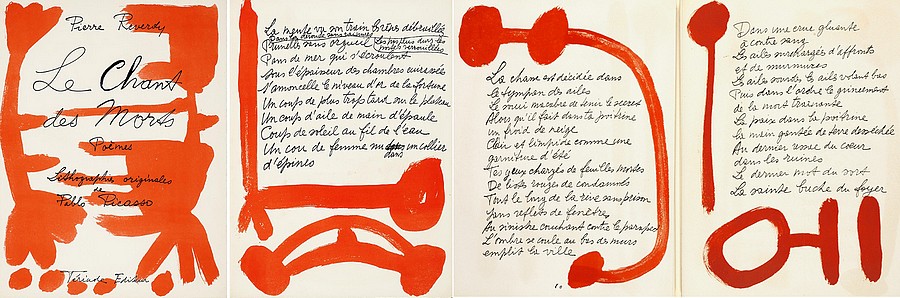 Pierre Reverdy
Le Chant
des Morts
Poèmes
Lithographies originales
de
Pablo Picasso
Tériade Editeur
La meute va son train
Prunelles sans orgueil
Pans de mer qui s'écroulent
Sous l'épaisseur des chambres cuirassées
S'amoncelle le niveau d'or de la fortune
Un coup de plus trop tard sur le plateau
Un coup d'aile de main d'épaule
Coup de soleil au fil de l'eau
Un cou de femme dans un collier
d'épines
La chance est décidée dans
le tympan des ailes
de tenir le secret
Alors qu'il fait dans ta poitrine
un froid de neige
Clair et limpide comme une
garniture d'été
Tes yeux chargés de feuilles mortes
De listes rouges de condamnés
Tout le long de la rive sans prison
sans reflets de fenêtres
Au sinistre couchant contre le parapet
L'ombre se coule au bas des murs
emplit la ville
Dans une crue
à contre sang
Les ailes surchargées d'affronts
et de murmures
Les ailes sourdes les ailes volant bas
Puis dans l'ordre le grincement
de la mort
La paix dans ta poitrine
la main gantée de terre desséchée
Au dernier essai du cœur
dans les ruines
Le dernier mot du sort
La sainte bûche du foyer